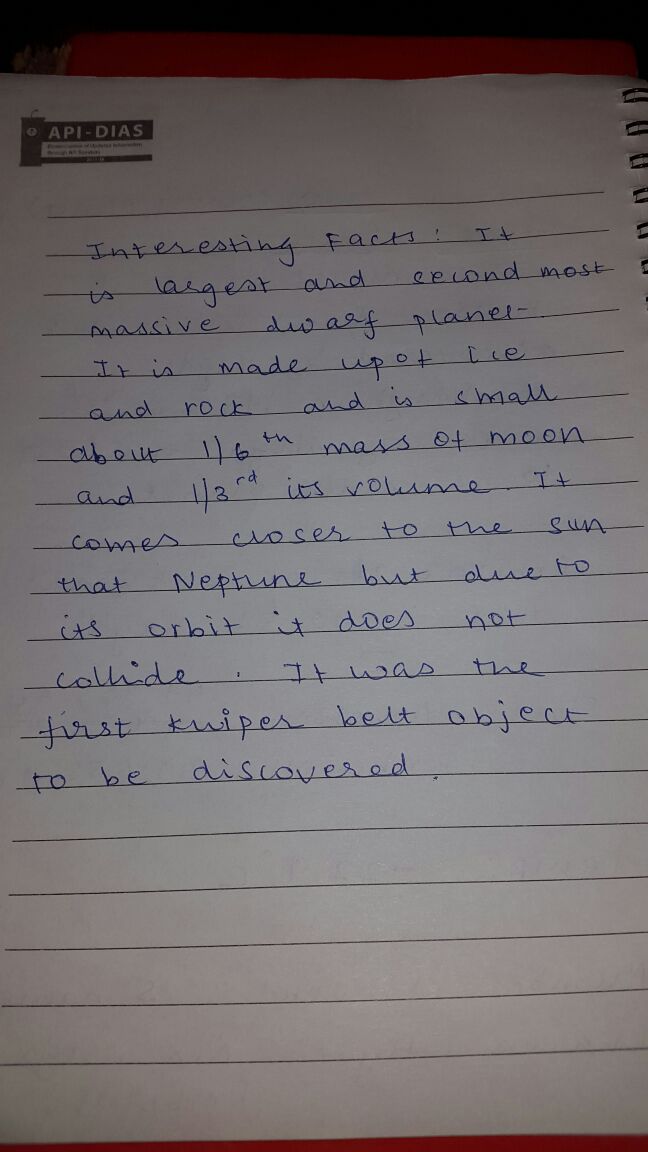 API-DIAS
Interesting Facts: It
is largest and second most
massive dwarf planet
It is made up of ice
and rock and is small
about 1/6th mass of moon
and 1/3rd its volume. It
comes closer to the sun
that Neptune but due to
its orbit it does not
collide. It was the
first kuiper belt object
to be discovered.